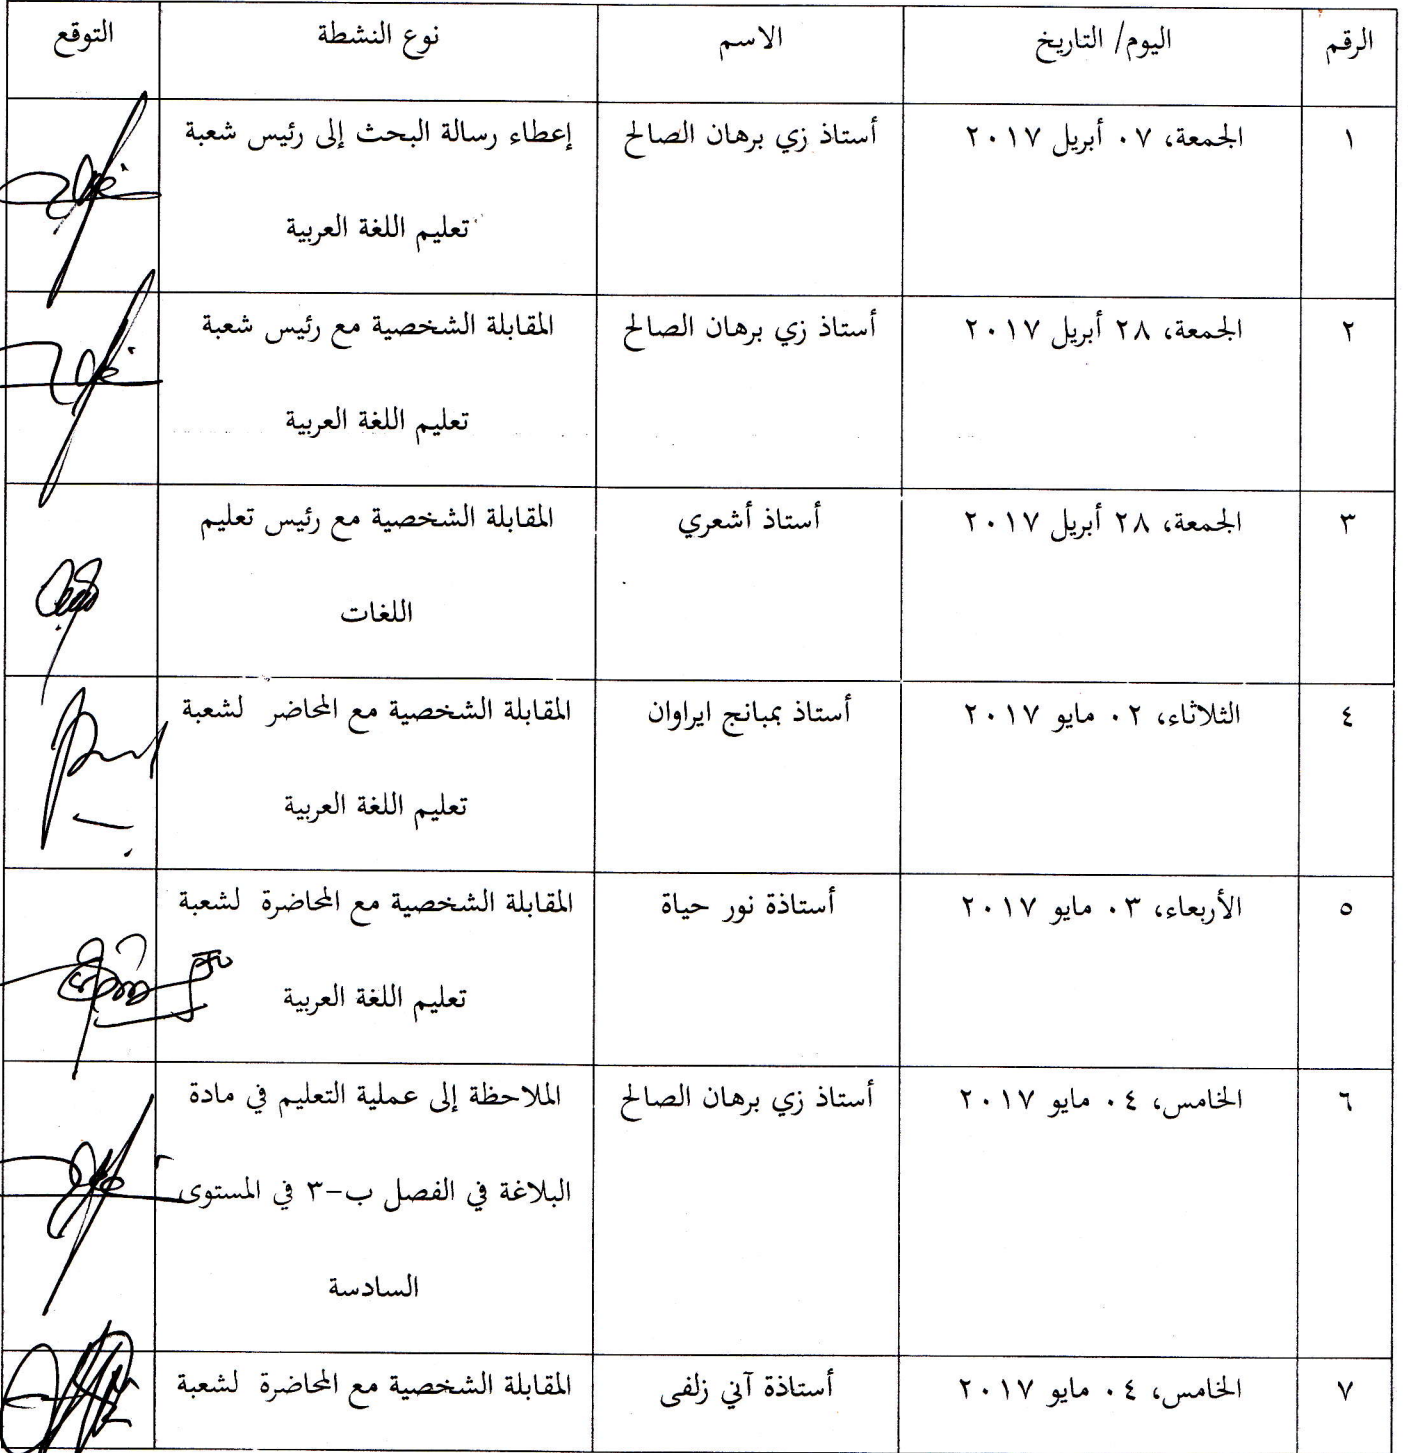 الرقم اليوم/ التاريخ الاسم نوع النشطة التوقع
١ الجمعة، ٠٧ أبريل ٢٠١٧ أستاذ زي برهان الصالح إعطاء رسالة البحث إلى رئيس شعبة
تعليم اللغة العربية
٢ الجمعة، ٢٨ أبريل ٢٠١٧ أستاذ زي برهان الصالح المقابلة الشخصية مع رئيس شعبة
تعليم اللغة العربية
٣ الجمعة، ٢٨ أبريل ٢٠١٧ أستاذ أشعري المقابلة الشخصية مع رئيس تعليم
اللغات
٤ الثلاثاء، ٠٢ مايو ٢٠١٧ أستاذ بمبانج ايراوان المقابلة الشخصية مع المحاضر لشعبة
تعليم اللغة العربية
٥ الأربعاء، ٠٣ مايو ٢٠١٧ أستاذة نور حياة المقابلة الشخصية مع المحاضرة لشعبة
تعليم اللغة العربية
٦ الخامس، ٠٤ مايو ٢٠١٧ أستاذ زي برهان الصالح الملاحظة إلى عملية التعليم في مادة
البلاغة في الفصل ب-٣ في المستوى
السادسة
٧ الخامس، ٠٤ مايو ٢٠١٧ أستاذة آني زلفى المقابلة الشخصية مع المحاضرة لشعبة